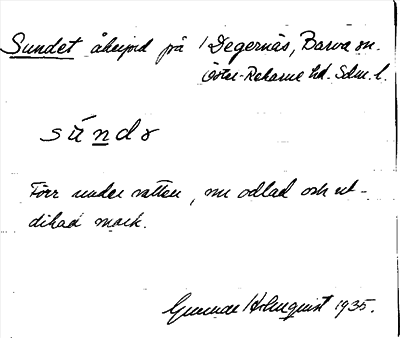 Sundet åkerjord på Degernäs, Barva sn.
Öster-Rekarne hd. Sdm. l.
súndə
Förr under vatten, nu odlad och ut-
dikad mark.
Gunnar Holmquist 1935.